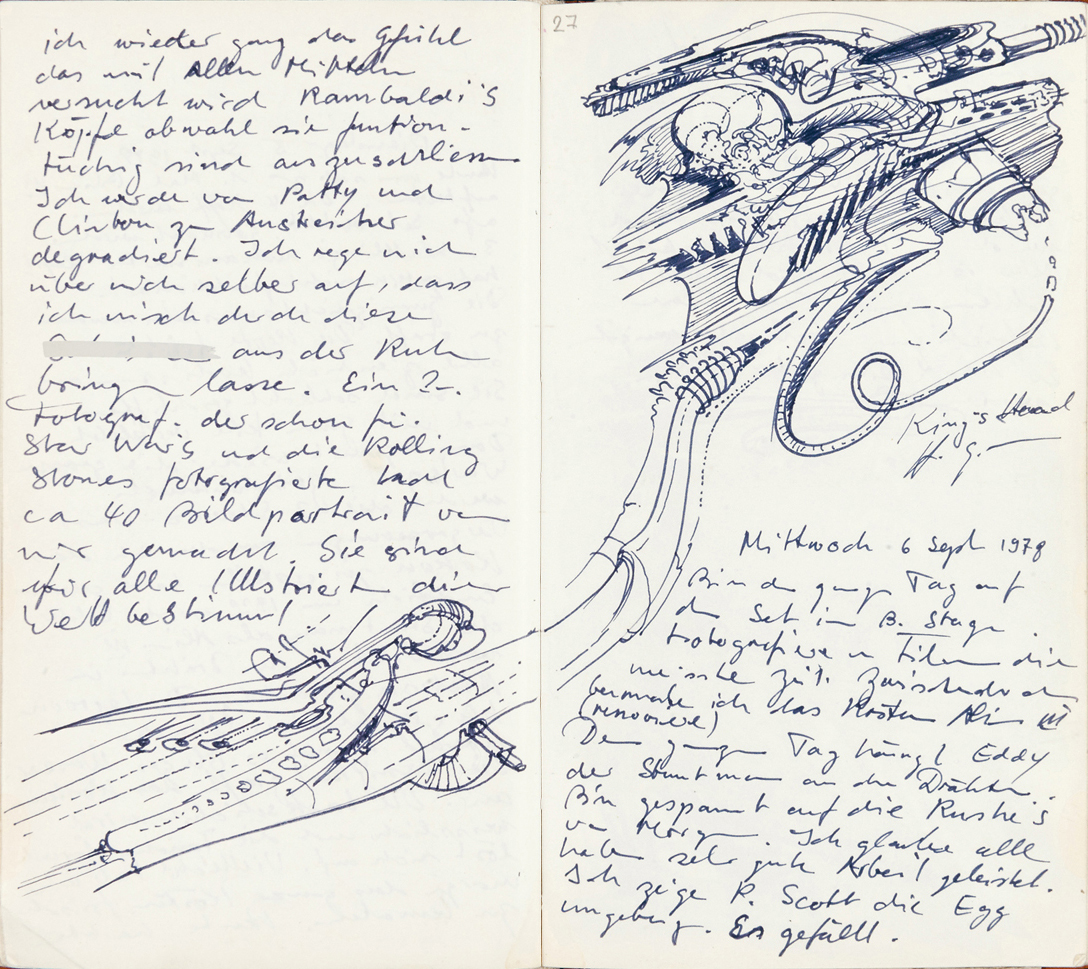 ich wieder ganz das Gefühl
das mit allen Mitteln
versucht wird Rambaldi's
Köpfe obwohl sie funtion-
tüchtig sind auszuschliessen
Ich werde von Patty und
Clinton zum
degradiert. Ich rege mich
über mich selber auf, dass
ich mich durch diese
aus der Ruhe
bringen lasse. Ein 2-.
Fotograf. der schon für.
Star Wars und die Rolling
Stones fotografierte hat
ca 40 Bildportrait von
mir gemacht. Sie sind
für alle Illustrierten dieser
Welt bestimmt
27
King's Head
H. G.
Mittwoch 6 Sept 1978
Bin den ganzen Tag auf
dem Set im B. Stage.
Fotografiere u Filme die
meiste Zeit. Zwischendurch
bemale ich das Kosten Alien
(renoviere)
Den ganzen Tag hängt Eddy
der Stuntman an den Drähten.
Bin gespannt auf die Rushe's
von Morgen. Ich glaube alle
haben sehr gute Arbeit geleistet.
Ich zeige R. Scott die Egg
umgebung. Es gefällt.